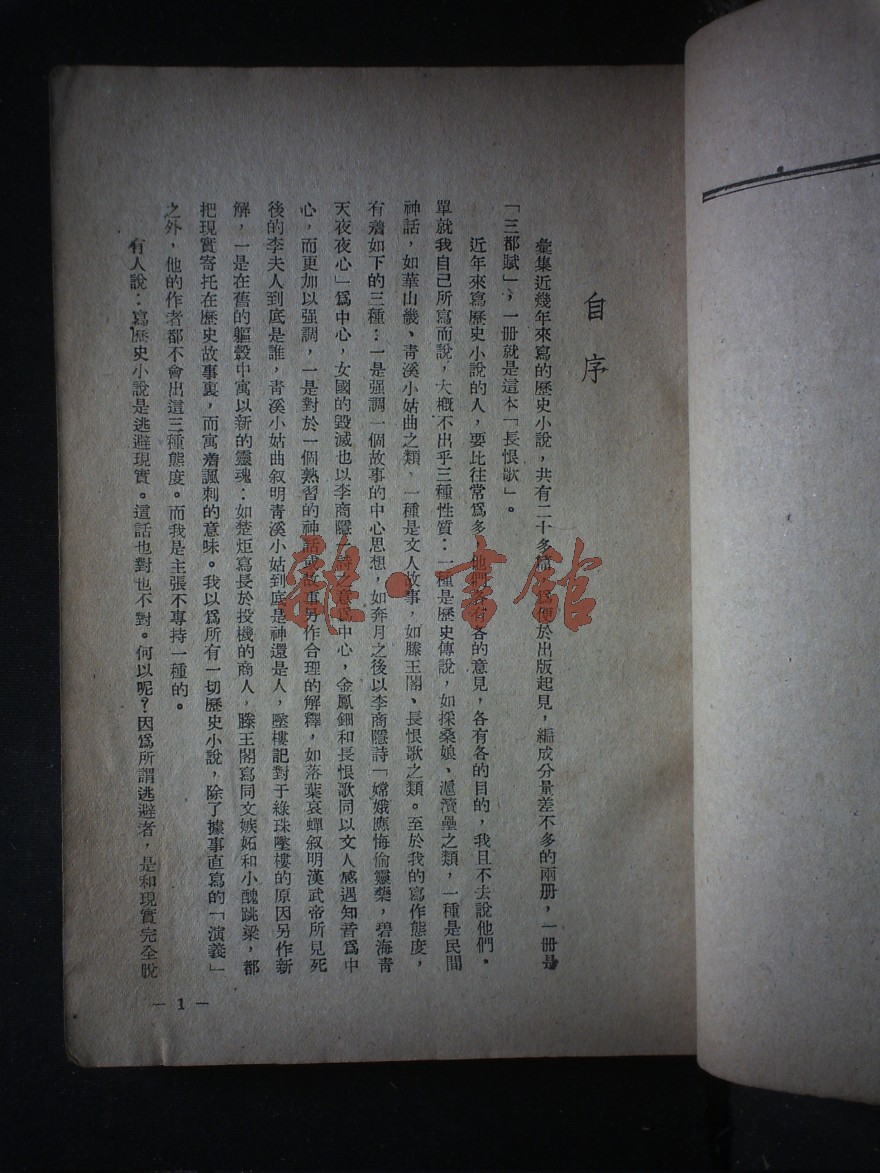 自序
彙集近幾年來寫的歷史小說，共有二十多篇，爲便於出版起見，編成分量差不多的兩册，一册是
「三都賦」，一册就是這本「長恨歌」。
近年來寫歷史小說的人，要比往常爲多，他們各有各的意見，各有各的目的，我且不去說他們。
單就我自己所寫而說，大概不出乎三種性質：一種是歷史傳說，如採桑娘、滬瀆壘之類，一種是民間
神話，如華山畿、青溪小姑曲之類，一種是文人故事，如滕王閣、長恨歌之類。至於我的寫作態度，
有着如下的三種：一是强調一個故事的中心思想，如奔月之後以李商隱詩「嫦娥應悔偷靈藥，碧海青
天夜夜心」爲中心，女國的毀滅也以李商隱一詩之意爲中心，金鳳鈿和長恨歌同以文人感遇知音爲中
心，而更加以强調，一是對於一個熟習的神話或故事另作合理的解釋，如落葉哀蟬叙明漢武帝所見死
後的李夫人到底是誰，青溪小姑曲叙明青溪小姑到底是神還是人，墜樓記對于綠珠墜樓的原因另作新
解，一是在舊的軀殼中寓以新的靈魂：如楚炬寫長於投機的商人，滕王閣寫同文嫉妬和小醜跳梁，都
把現實寄托在歷史故事裏，而寓着諷刺的意味。我以爲所有一切歷史小說，除了據事直寫的「演義」
之外，他的作者都不會出這三種態度。而我是主張不專持一種的。
有人說：寫歷史小說是逃避現實。這話也對也不對。何以呢？因爲所謂逃避者，是和現實完全脫
— 1 —
雜·書館